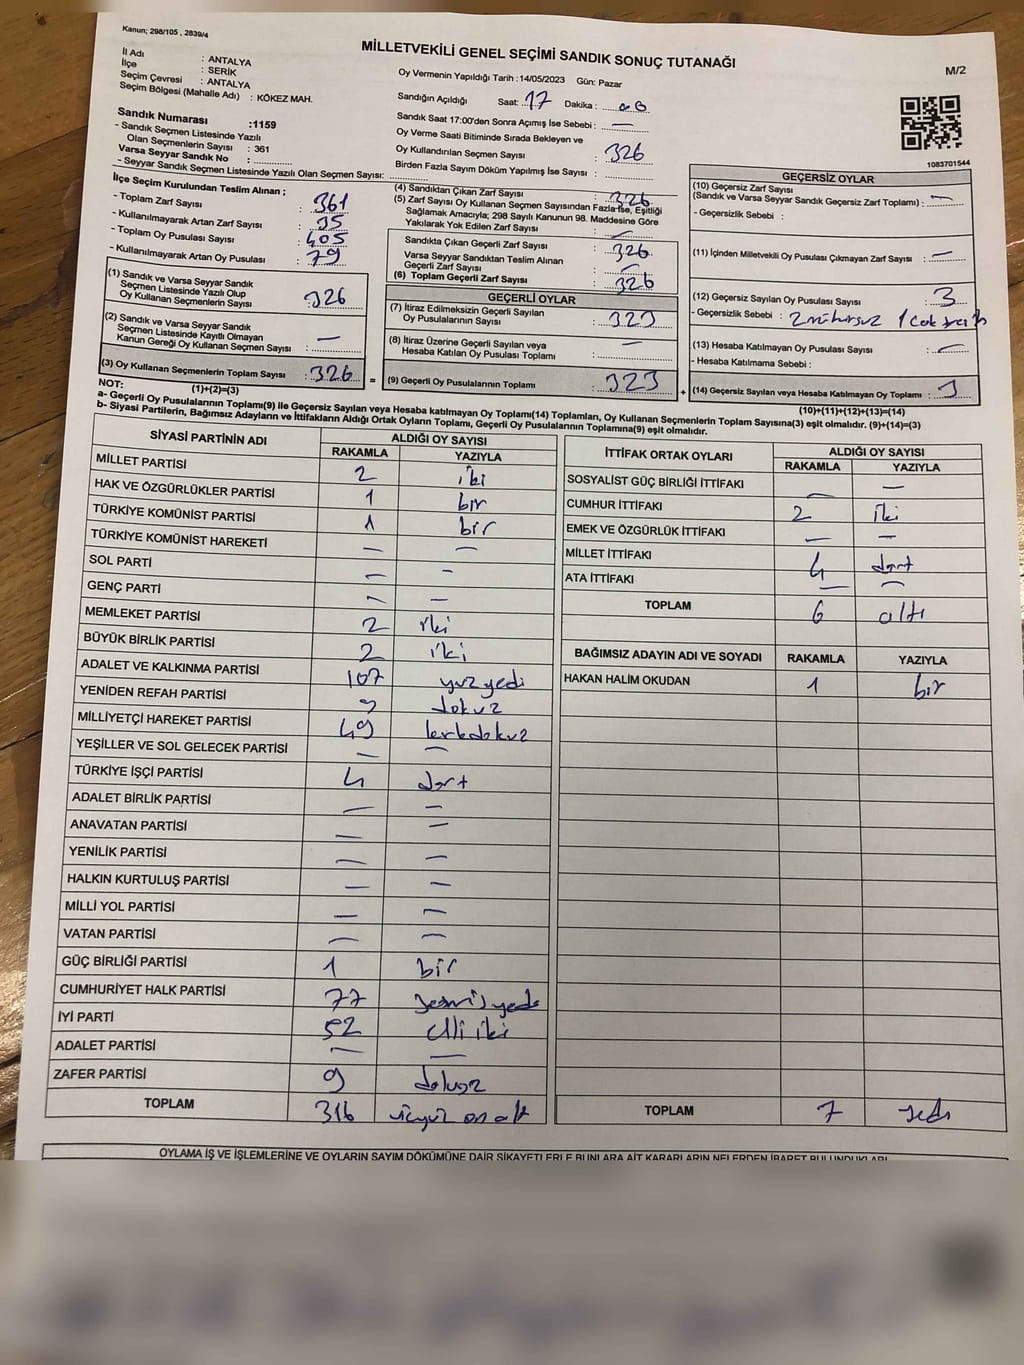 Kanun; 298/105 , 2839/4
MİLLETVEKİLİ GENEL SEÇİMİ SANDIK SONUÇ TUTANAĞI
M/2
İl Adı : ANTALYA
İlçe : SERİK
Seçim Çevresi : ANTALYA
Seçim Bölgesi (Mahalle Adı) : KÖKEZ MAH.
Sandık Numarası :1159
- Sandık Seçmen Listesinde Yazılı
Olan Seçmenlerin Sayısı : 361
Varsa Seyyar Sandık No :
- Seyyar Sandık Seçmen Listesinde Yazılı Olan Seçmen Sayısı:
Oy Vermenin Yapıldığı Tarih :14/05/2023 Gün: Pazar
Sandığın Açıldığı Saat: 17 Dakika : 00
Sandık Saat 17:00'den Sonra Açımış İse Sebebi : —
Oy Verme Saati Bitiminde Sırada Bekleyen ve
Oy Kullandırılan Seçmen Sayısı : 326
Birden Fazla Sayım Döküm Yapılmış İse Sayısı :
1083701544
İlçe Seçim Kurulundan Teslim Alınan ;
- Toplam Zarf Sayısı : 361
- Kullanılmayarak Artan Zarf Sayısı : 35
- Toplam Oy Pusulası Sayısı : 405
- Kullanılmayarak Artan Oy Pusulası : 79
(1) Sandık ve Varsa Seyyar Sandık
Seçmen Listesinde Yazılı Olup
Oy Kullanan Seçmenlerin Sayısı : 326
(2) Sandık ve Varsa Seyyar Sandık
Seçmen Listesinde Kayıtlı Olmayan
Kanun Gereği Oy Kullanan Seçmen Sayısı : —
(3) Oy Kullanan Seçmenlerin Toplam Sayısı : 326
(1)+(2)=(3)
(4) Sandıktan Çıkan Zarf Sayısı : 326
(5) Zarf Sayısı Oy Kullanan Seçmen Sayısından Fazla İse, Eşitliği
Sağlamak Amacıyla; 298 Sayılı Kanunun 98. Maddesine Göre
Yakılarak Yok Edilen Zarf Sayısı : —
Sandıkta Çıkan Geçerli Zarf Sayısı : 326
Varsa Seyyar Sandıktan Teslim Alınan
Geçerli Zarf Sayısı : —
(6) Toplam Geçerli Zarf Sayısı : 326
GEÇERLİ OYLAR
(7) İtiraz Edilmeksizin Geçerli Sayılan
Oy Pusulalarının Sayısı : 323
(8) İtiraz Üzerine Geçerli Sayılan veya
Hesaba Katılan Oy Pusulası Toplamı : —
= (9) Geçerli Oy Pusulalarının Toplamı : 323 +
GEÇERSİZ OYLAR
(10) Geçersiz Zarf Sayısı
(Sandık ve Varsa Seyyar Sandık Geçersiz Zarf Toplamı) : —
- Geçersizlik Sebebi :
(11) İçinden Milletvekili Oy Pusulası Çıkmayan Zarf Sayısı : —
(12) Geçersiz Sayılan Oy Pusulası Sayısı : 3
- Geçersizlik Sebebi : 2 mühürsüz 1
(13) Hesaba Katılmayan Oy Pusulası Sayısı : —
- Hesaba Katılmama Sebebi :
(14) Geçersiz Sayılan veya Hesaba Katılmayan Oy Toplamı : 3
(10)+(11)+(12)+(13)=(14)
NOT:
a- Geçerli Oy Pusulasının Toplamı(9) ile Geçersiz Sayılan veya Hesaba katılmayan Oy Toplamı(14) Toplamları, Oy Kullanan Seçmenlerin Toplam Sayısına(3) eşit olmalıdır. (9)+(14)=(3)
b- Siyasi Partilerin, Bağımsız Adayların ve İttifakların Aldığı Ortak Oyların Toplamı, Geçerli Oy Pusulalarının Toplamına(9) eşit olmalıdır.
SİYASİ PARTİNİN ADI ALDIĞI OY SAYISI
RAKAMLA YAZIYLA
MİLLET PARTİSİ 2 iki
HAK VE ÖZGÜRLÜKLER PARTİSİ 1 bir
TÜRKİYE KOMÜNİST PARTİSİ 1 bir
TÜRKİYE KOMÜNİST HAREKETİ — —
SOL PARTİ — —
GENÇ PARTİ — —
MEMLEKET PARTİSİ 2 iki
BÜYÜK BİRLİK PARTİSİ 2 iki
ADALET VE KALKINMA PARTİSİ 107 yüz yedi
YENİDEN REFAH PARTİSİ 9 dokuz
MİLLİYETÇİ HAREKET PARTİSİ 49 kırkdokuz
YEŞİLLER VE SOL GELECEK PARTİSİ — —
TÜRKİYE İŞÇİ PARTİSİ 4 dört
ADALET BİRLİK PARTİSİ — —
ANAVATAN PARTİSİ — —
YENİLİK PARTİSİ — —
HALKIN KURTULUŞ PARTİSİ — —
MİLLİ YOL PARTİSİ — —
VATAN PARTİSİ — —
GÜÇ BİRLİĞİ PARTİSİ 1 bir
CUMHURİYET HALK PARTİSİ 77 yetmiş yedi
İYİ PARTİ 52 elli iki
ADALET PARTİSİ — —
ZAFER PARTİSİ 9 dokuz
TOPLAM 316 üçyüz on altı
İTTİFAK ORTAK OYLARI ALDIĞI OY SAYISI
RAKAMLA YAZIYLA
SOSYALİST GÜÇ BİRLİĞİ İTTİFAKI — —
CUMHUR İTTİFAKI 2 iki
EMEK VE ÖZGÜRLÜK İTTİFAKI — —
MİLLET İTTİFAKI 4 dört
ATA İTTİFAKI — —
TOPLAM 6 altı
BAĞIMSIZ ADAYIN ADI VE SOYADI RAKAMLA YAZIYLA
HAKAN HALİM OKUDAN 1 bir
TOPLAM 7 yedi
OYLAMA İŞ VE İŞLEMLERİNE VE OYLARIN SAYIM DÖKÜMÜNE DAİR ŞİKAYETLERLE BUNLARA AİT KARARLARIN NELERDEN İBARET BULUNDUKLARI